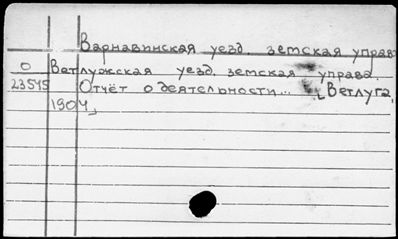 Варнавинская уезд. земская управа
О Ветлужская уезд. земская управа.
23545 Отчёт о деятельности... Ветлуга,
1904,